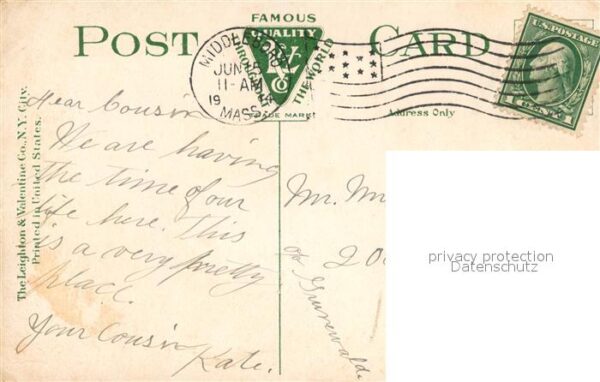 FAMOUS
POST CARD
QUALITY
THROUGHOUT THE WORLD
TRADE MARK
MIDDLEBORO
JUN 15
11-AM
19
MASS.
U.S. POSTAGE
1 CENT 1
Address Only
The Leighton & Valentine Co., N.Y. City.
Printed in United States.
Dear Cousin
We are having
the time of our
life here. This
is a very pretty
place.
Your Cousin
Kate.
Mr. M
20
c/o Grunewald
privacy protection
Datenschutz